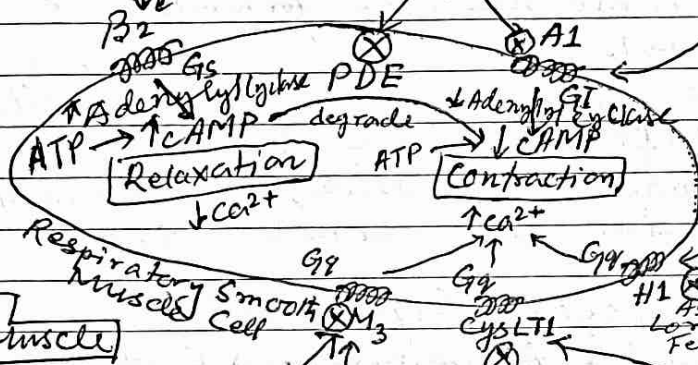 B2
A1
Gs
PDE
↑ Adenylyl cyclase
GI
↓ Adenylyl cyclase
ATP → ↑ cAMP
degrade
ATP → ↓ cAMP
Relaxation
Contraction
↓ Ca2+
↑ Ca2+
Respiratory Smooth
Muscle Cell
Gq
Gq
Gq
M3
CysLT1
H1
Muscle